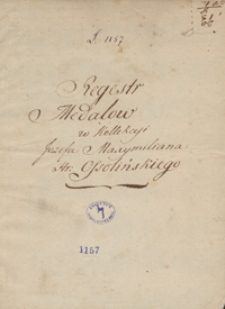 L. 1157
Regestr
Medalow
w Kollekcyi
Jozefa Maxymiliana
Hr. Ossolińskiego
1157